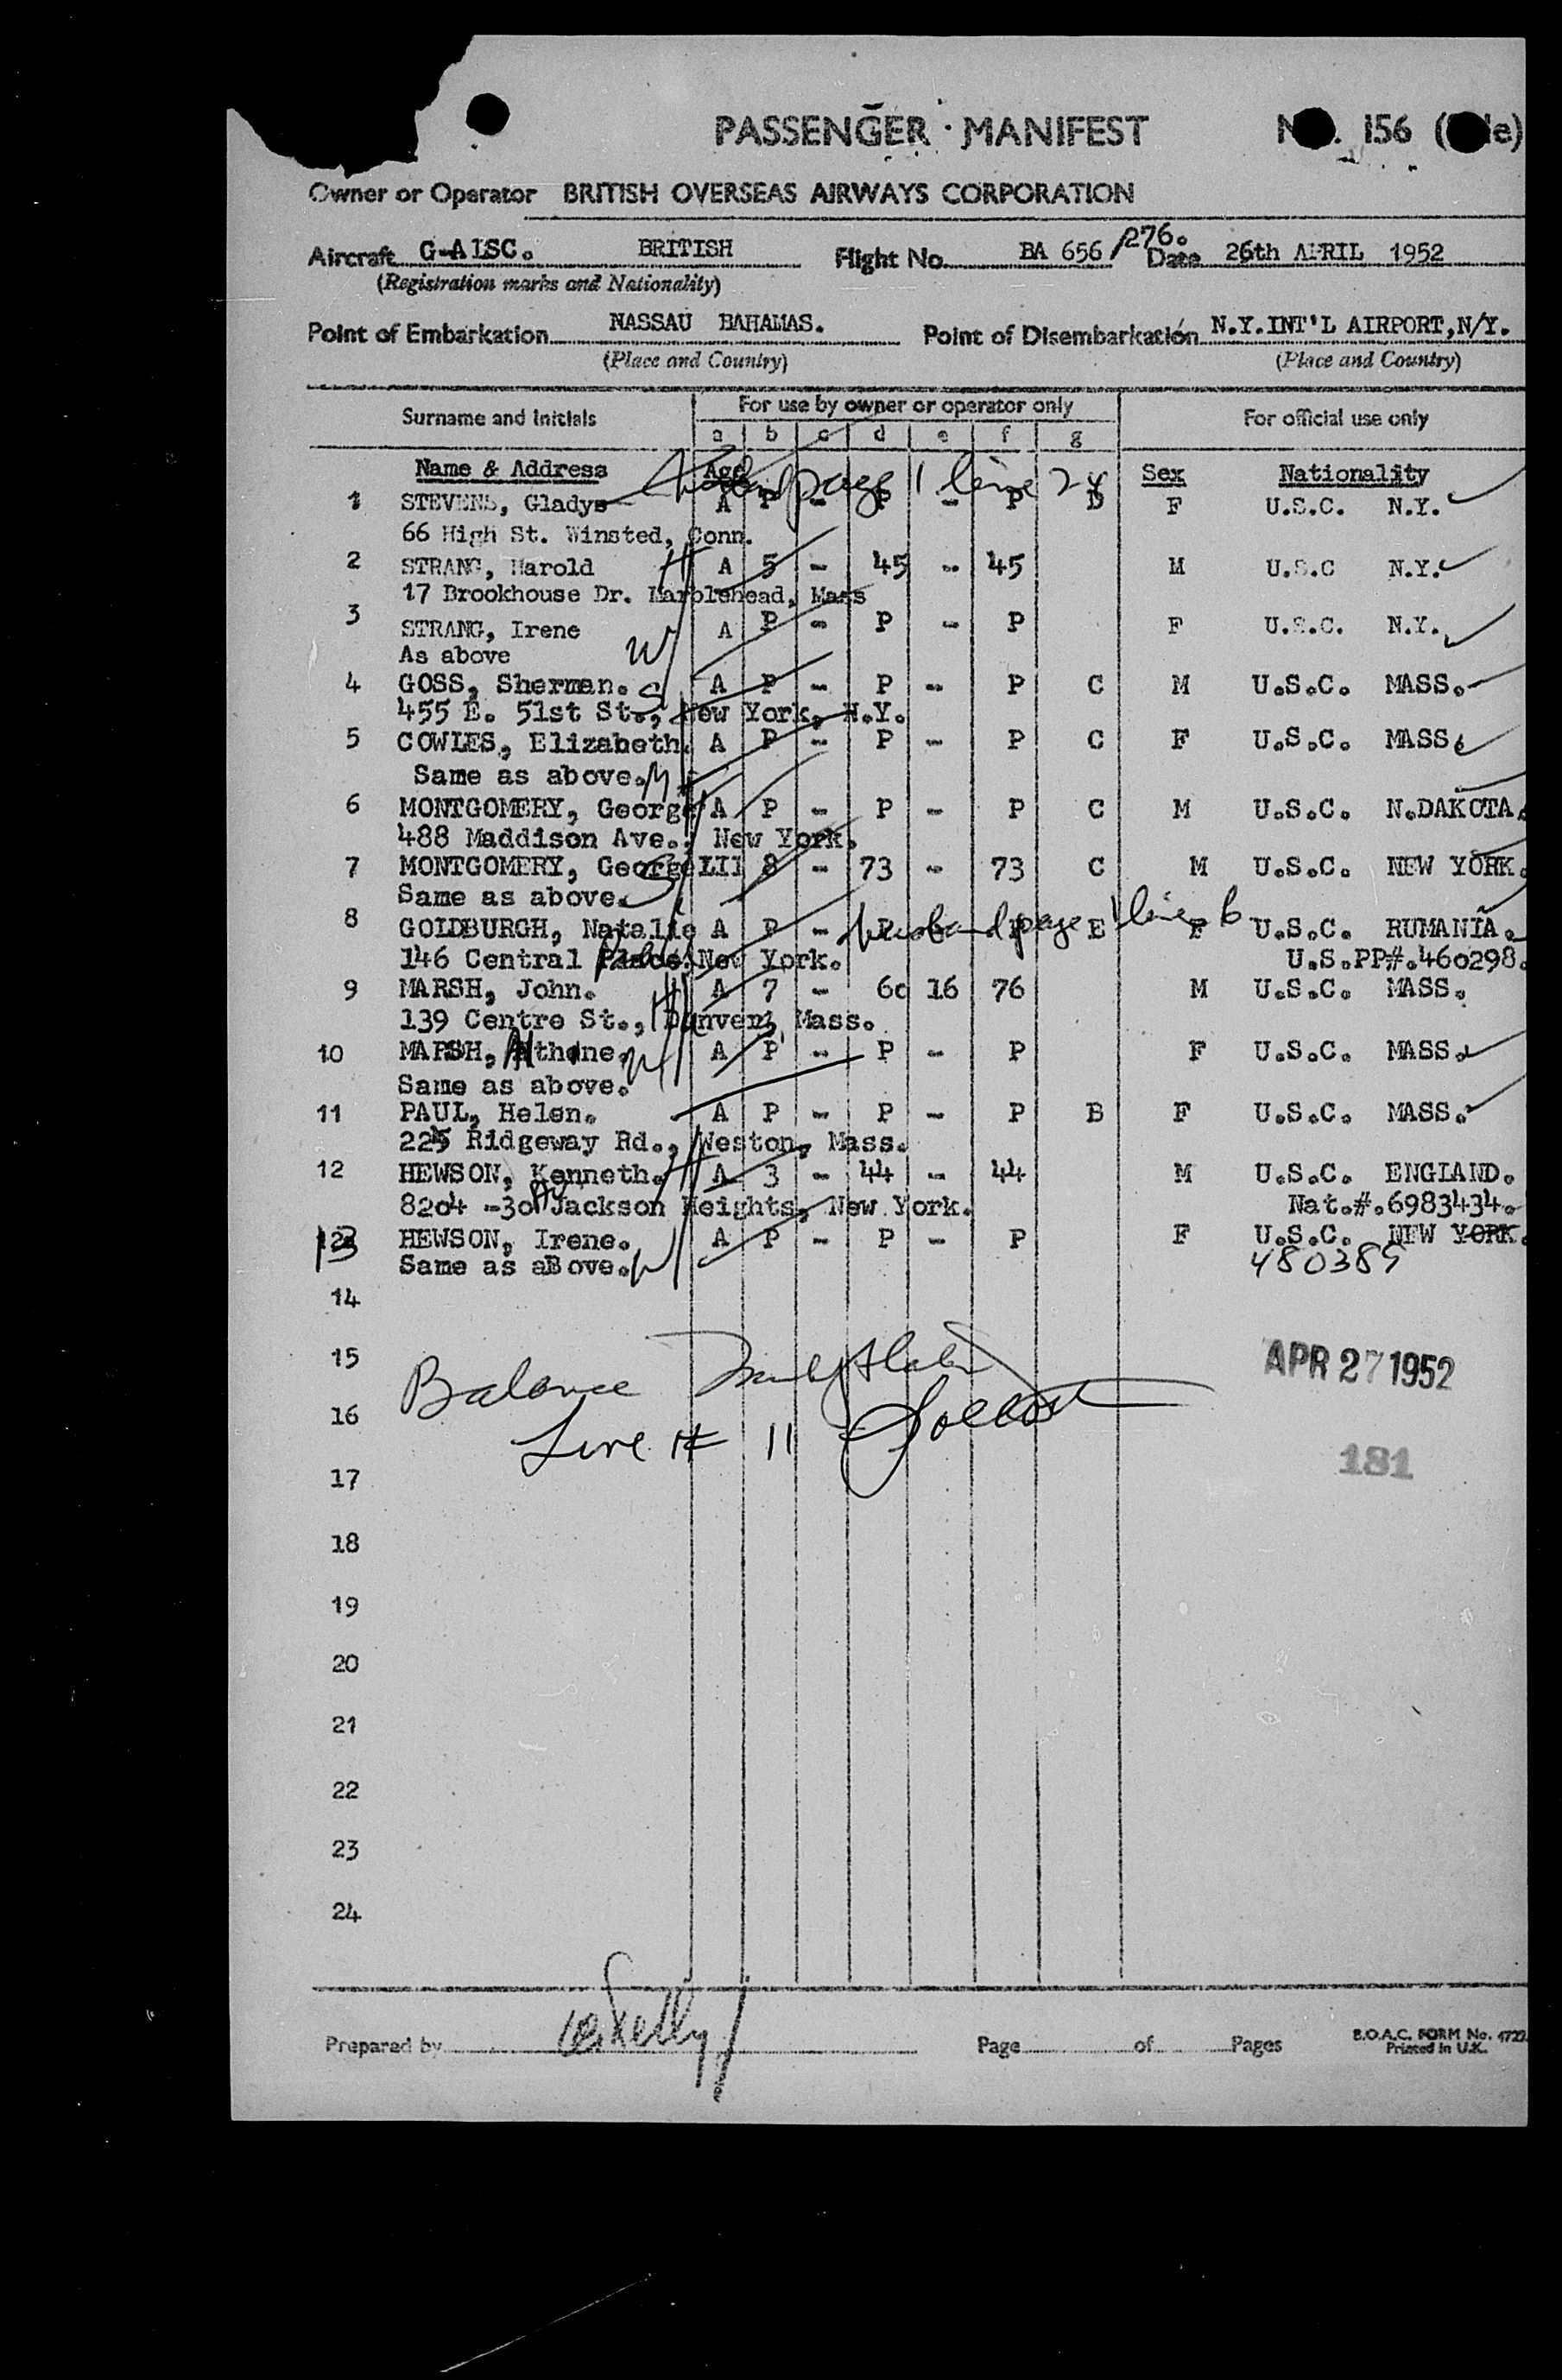 PASSENGER · MANIFEST
156
Owner or Operator BRITISH OVERSEAS AIRWAYS CORPORATION
Aircraft G-AISC. BRITISH Flight No. BA 656/276. Date 26th APRIL 1952
(Registration marks and Nationality)
Point of Embarkation NASSAU BAHAMAS. Point of Disembarkation N.Y.INT'L AIRPORT,N/Y.
(Place and Country) (Place and Country)
Surname and Initials For use by owner or operator only For official use only
a b c d e f g
Name & Address Age page 1 line 24 Sex Nationality
1 STEVENS, Gladys A P - P - P D F U.S.C. N.Y.
66 High St. Winsted, Conn.
2 STRANG, Harold H A 5 - 45 - 45 M U.S.C N.Y.
17 Brookhouse Dr. Marblehead, Mass
3 STRANG, Irene A P - P - P F U.S.C. N.Y.
As above W
4 GOSS, Sherman. S A P - P - P C M U.S.C. MASS.
455 E. 51st St., New York, N.Y.
5 COWLES, Elizabeth. A P - P - P C F U.S.C. MASS.
Same as above. M
6 MONTGOMERY, George A P - P - P C M U.S.C. N.DAKOTA.
488 Maddison Ave., New York.
7 MONTGOMERY, George III 8 - 73 - 73 C M U.S.C. NEW YORK.
Same as above. S
8 GOLDBURGH, Natalie A P - P husband page 1 line 6 E F U.S.C. RUMANIA.
146 Central New York. U.S.PP#.460298.
9 MARSH, John. H A 7 - 60 16 76 M U.S.C. MASS.
139 Centre St., Danvers, Mass.
10 MARSH, W A P - P - P F U.S.C. MASS.
Same as above.
11 PAUL, Helen. A P - P - P B F U.S.C. MASS.
225 Ridgeway Rd., Weston, Mass.
12 HEWSON, Kenneth. H A 3 - 44 - 44 M U.S.C. ENGLAND.
8204 -30 Jackson Heights, New York. Nat.#.6983434.
13 HEWSON, Irene. A P - P - P F U.S.C. NEW YORK.
Same as aBove. W 480389
14
15 Balance APR 27 1952
16 Line # 11
181
17
18
19
20
21
22
23
24
Prepared by Page of Pages B.O.A.C. FORM No. 4722
Printed in U.K.